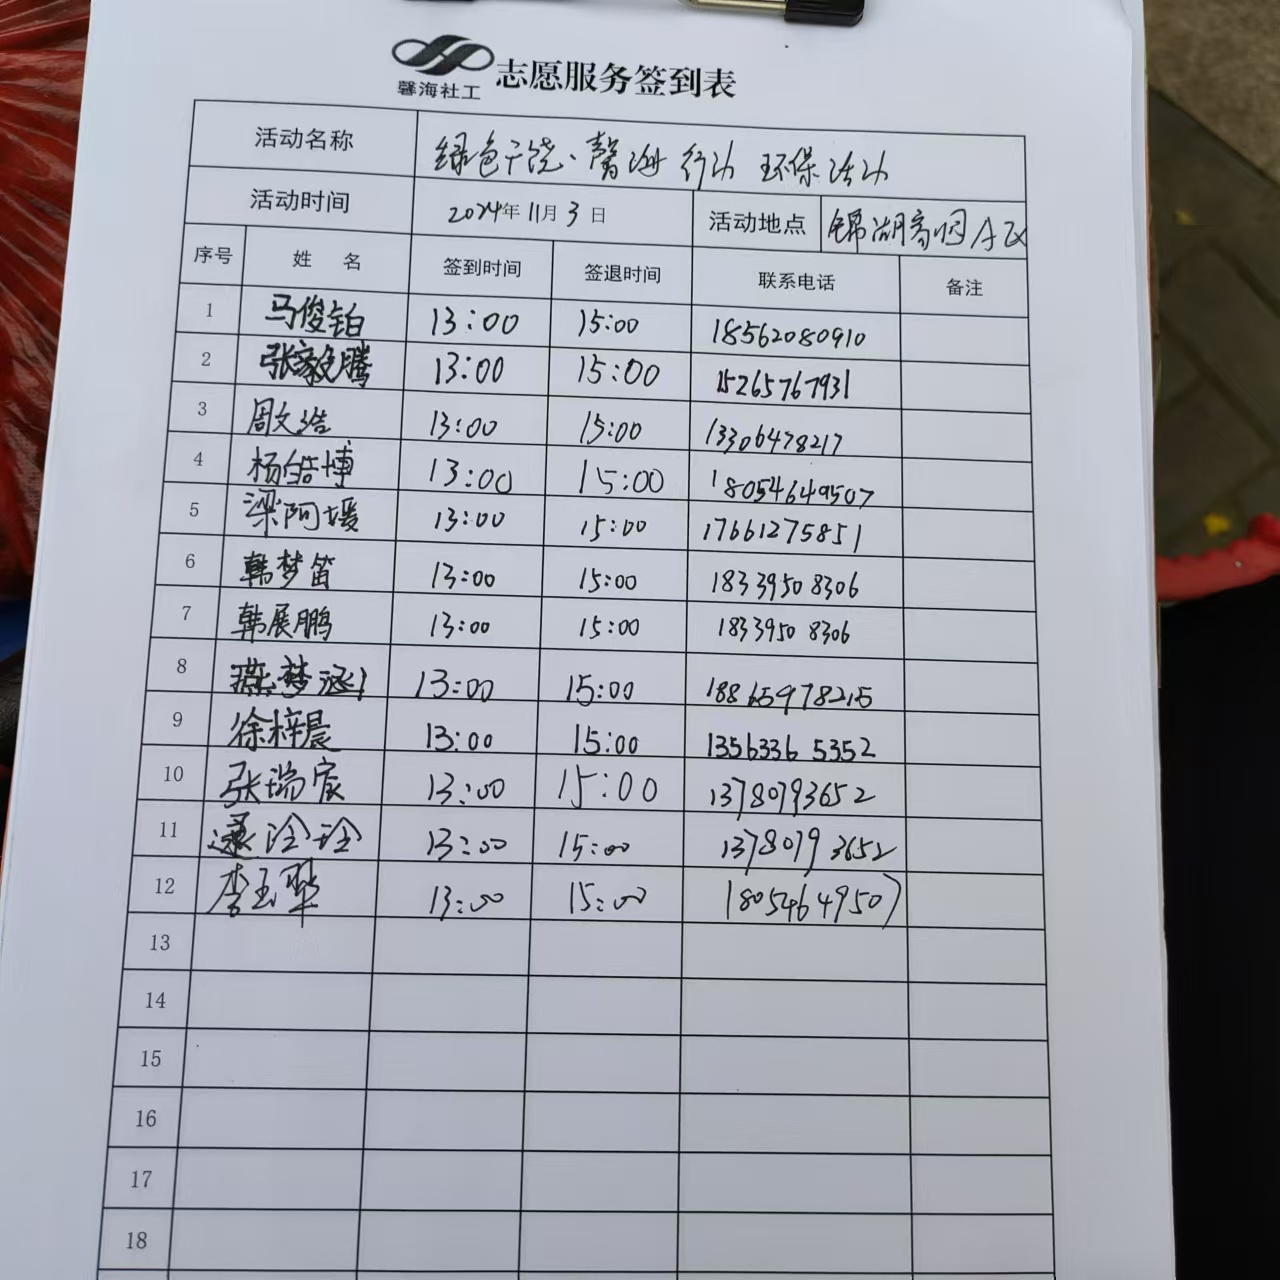 馨海社工 志愿服务签到表
活动名称 绿色干饶、馨海行动 环保活动
活动时间 2024年 11月 3 日 活动地点 锦湖高 A区
序号 姓 名 签到时间 签退时间 联系电话 备注
1 马俊铂 13:00 15:00 18562080910
2 张毅腾 13:00 15:00 15265767931
3 周文浩 13:00 15:00 13306478217
4 杨皓博 13:00 15:00 18054649507
5 梁阿媛 13:00 15:00 17661275851
6 韩梦笛 13:00 15:00 18339508306
7 韩展鹏 13:00 15:00 18339508306
8 燕梦涵 13:00 15:00 18865978215
9 徐梓晨 13:00 15:00 13563365352
10 张瑞宸 13:00 15:00 13780793652
11 13:00 15:00 13780793652
12 李玉翠 13:00 15:00 18054649507
13
14
15
16
17
18